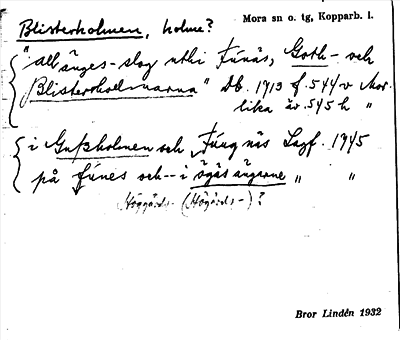 Blisterholmen, holme?
Mora sn o. tg, Kopparb. l.
"all änges-slog uthi Funäs, Goth- och
Blisterholmarna" Db. 1713 f. 544 v Mor.
lika äv. 545 h "
i Gutzholmen och Fungnäs Lagf. 1745
på funes och -- i ägäs ängerne " "
Höggårds- (Högårds-)?
Bror Lindén 1932